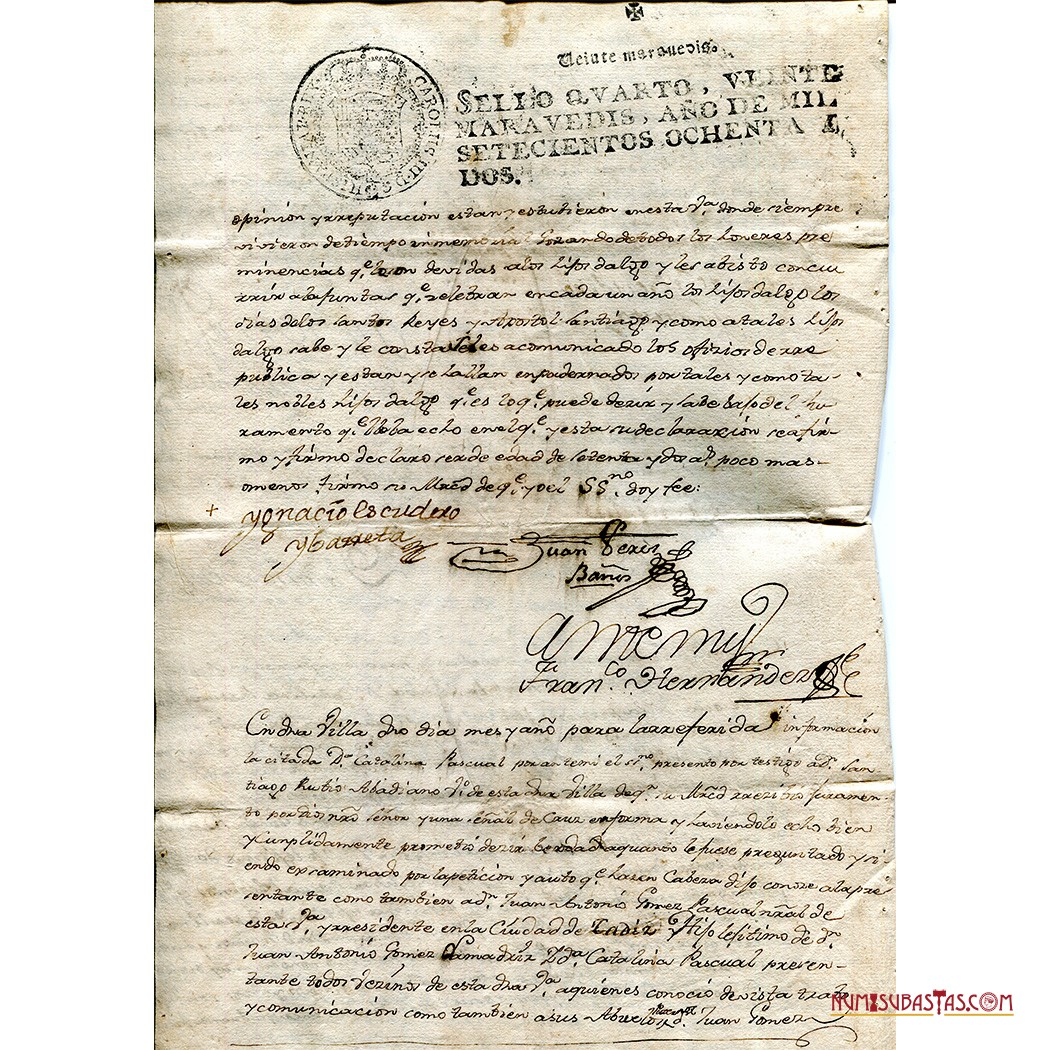 Veinte maravedis.
SELLO QVARTO, VEINTE
MARAVEDIS, AÑO DE MIL
SETECIENTOS OCHENTA Y
DOS.
CAROLUS III D G HISPANIAR REX
opinion y rreputacion estan y estubieron en esta Vª. donde siempre
vivieron de tiempo inmemorial Gozando de todos los honores pre
minencias qᵉ. son devidas a los hijos dalgo y les a bisto concu
rrir a las juntas qᵉ. zelebran en cada un año los hijos dalgo los
dias de los santos Reyes y Apostol Santiago y como a tales hijos
dalgo sabe y le consta seles a comunicado los ofizios de rre
publica y estan y se hallan enpadronados por tales y como ta
les nobles hijos dalgo qᵉ. es lo qᵉ. puede dezir y sabe bajo del ju
ramento qᵉ. lleba echo en el qᵉ. y esta su declarazion se afir
mo y firmo declaro ser de edad de setenta y dos aˢ. poco mas
o menos firmo su Mrzd de qᵉ. yo el SSⁿᵒ. doy fee:
+ Ygnacio Escudero
Ybarreta
Juan Perez
Baños
Antemy
Franᶜᵒ. Hernandez
En dha Villa dho dia mes y año para la rreferida informacion
la citada Dª. Catalina Pascual por antemi el sⁿᵒ. presento por testigo a Dⁿ. San-
tiago Rubio Abadiano Vº. de esta dha Villa de qⁿ. su Mrzd rrezibio juramen-
to por Dios nrõ Señor y una señal de Cruz en forma y haviendolo echo bien
y cumplidamente prometio dezir berdad a quanto le fuese preguntado y si
endo examinado por la peticion y auto qᵉ. hazen Cabeza dijo conoze a la pre
sentante como tambien a dⁿ. Juan Antonio Gomez Pascual nral de
esta Vª. y rresidente en la Ciudad de Cadiz Hijo lejitimo de dⁿ.
Juan Antonio Gomez Lamadriz y dª. Catalina Pascual presen-
tante todos Vezinos de esta dha Vª. a quienes conocio de vista trato
y comunicacion como tambien a sus Abuelos Dⁿ. Juan Gomez
NUMISUBASTAS.COM